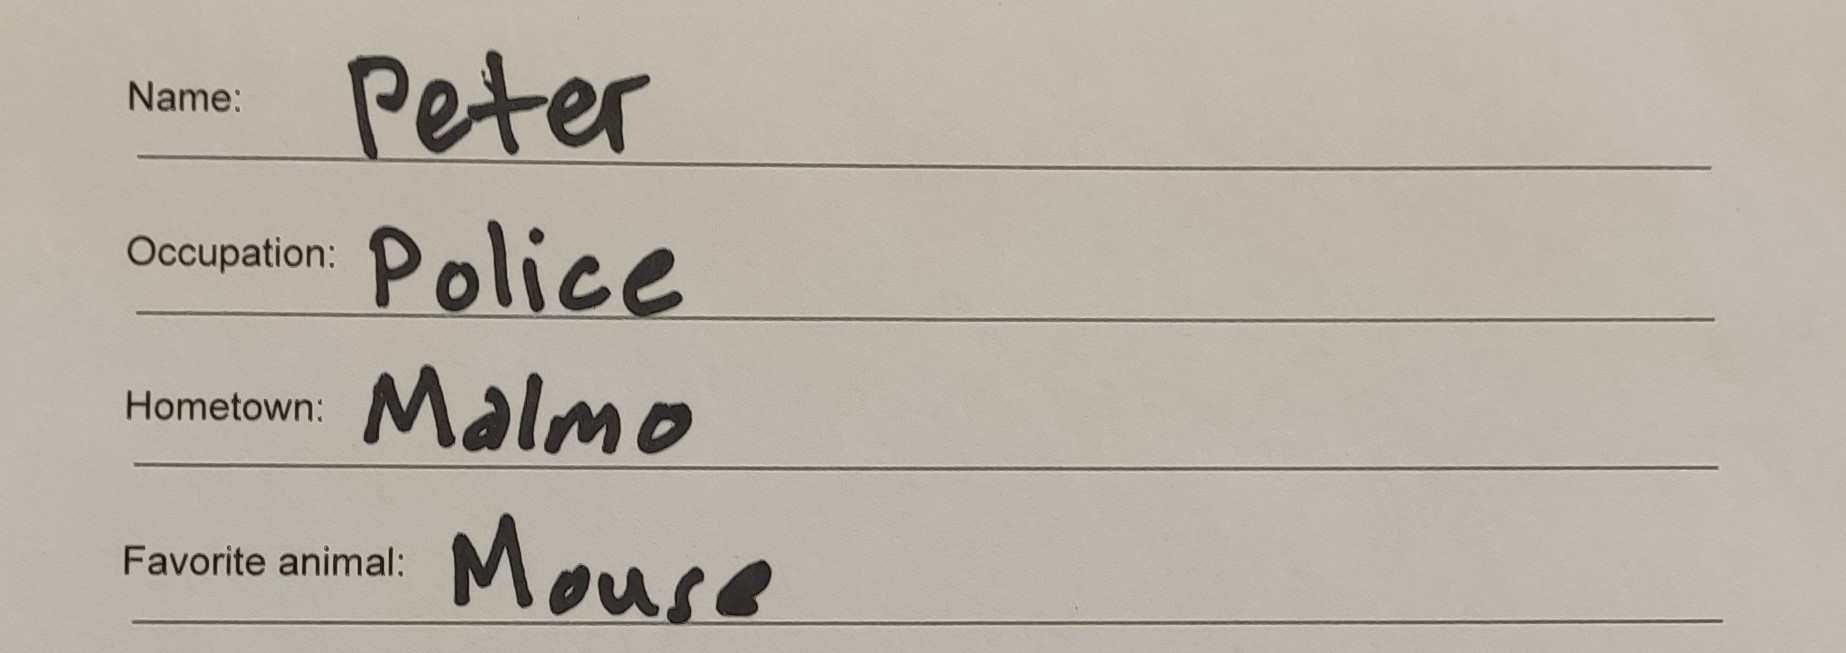 Name: Peter
Occupation: Police
Hometown: Malmo
Favorite animal: Mouse